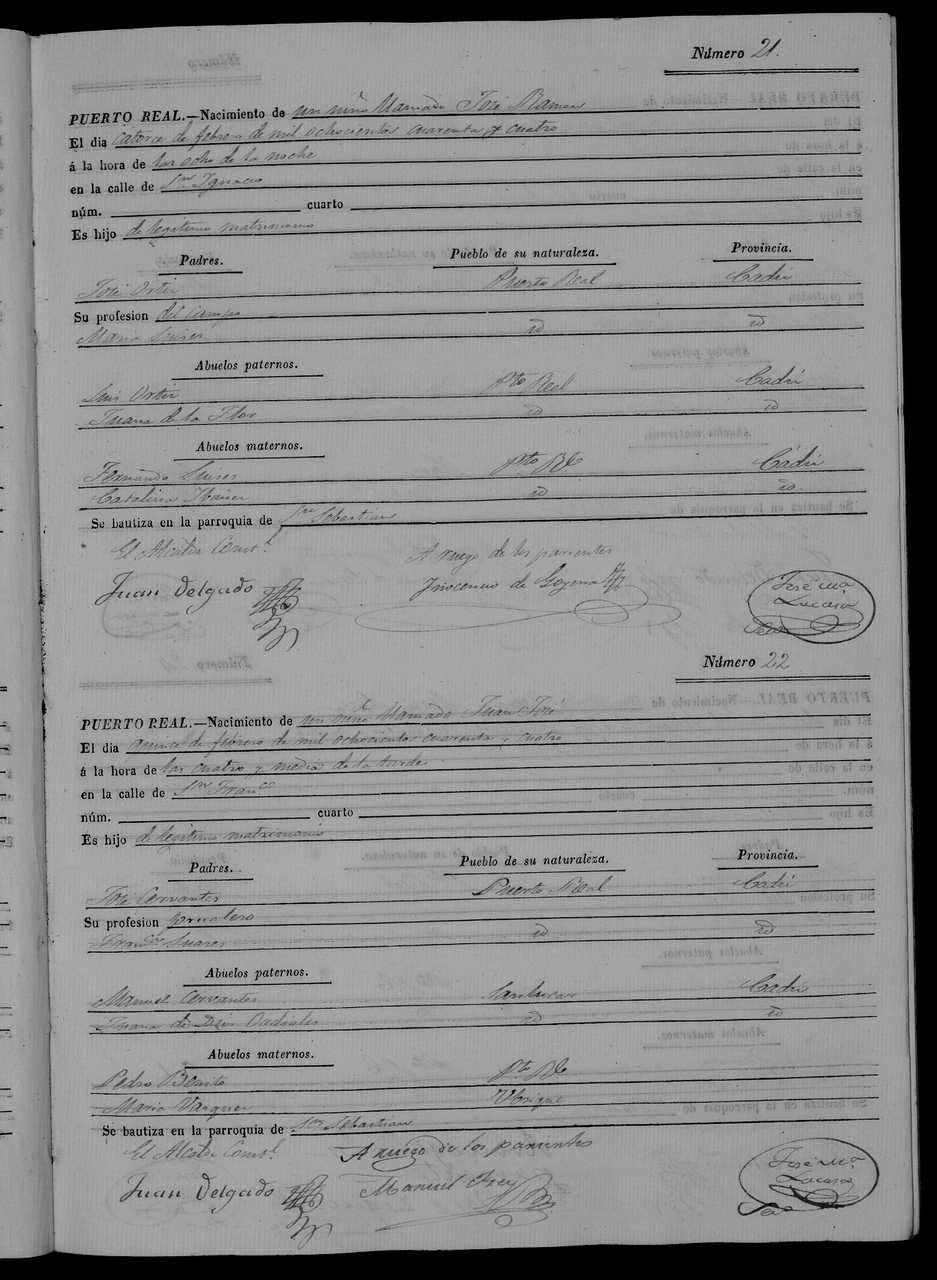 Número 21.
PUERTO REAL.—Nacimiento de un niño llamado José Ramon
El dia catorce de febrero de mil ochocientos cuarenta y cuatro
á la hora de las ocho de la noche
en la calle de Sn Ignacio
núm. cuarto
Es hijo de legitimo matrimonio
Padres. Pueblo de su naturaleza. Provincia.
José Ortiz Puerto Real Cadiz
Su profesion del campo
Maria id id
Abuelos paternos.
Luis Ortiz Pto Real Cadiz
Juana de la Flor id id
Abuelos maternos.
Fernando Pto Rl Cádiz
Catalina Ibañez id id
Se bautiza en la parroquia de Sn Sebastian
El Alcalde Consl. A ruego de los parientes
Juan Delgado Inocencio de Goyena José Ma
Lucasa
Secr
Número 22
PUERTO REAL.—Nacimiento de un niño llamado Juan José
El dia quince de febrero de mil ochocientos cuarenta y cuatro
á la hora de las cuatro y media de la tarde
en la calle de Sn Franco
núm. cuarto
Es hijo de legitimo matrimonio
Padres. Pueblo de su naturaleza. Provincia.
José Cervantes Puerto Real Cadiz
Su profesion jornalero
Franca Suares id id
Abuelos paternos.
Manuel Cervantes Sanlucar Cadiz
Juana de Dios id id
Abuelos maternos.
Pedro Benito Pto Rl
Maria Vazquez Ubrique
Se bautiza en la parroquia de Sn Sebastian
El Alcalde Consl. A ruego de los parientes
Juan Delgado Manuel Rey José Ma
Lucasa
Secr